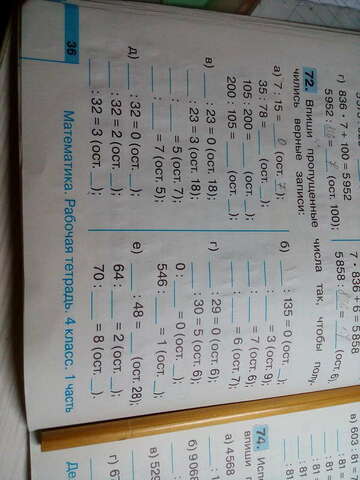 г) 836 · 7 + 100 = 5952
5952 : ___ = 7 (ост. 100);
7 · 836 + 6 = 5858
5858 : ___ = ___ (ост. 6)
72. Впиши пропущенные числа так, чтобы полу-
чились верные записи:
а) 7 : 15 = 0 (ост. 7);
35 : 78 = ___ (ост. ___);
105 : 200 = ___ (ост. ___);
200 : 105 = ___ (ост. ___);
б) ___ : 135 = 0 (ост. ___);
___ : ___ = 3 (ост. 9);
___ : ___ = 7 (ост. 6);
___ : ___ = 6 (ост. 7);
в) ___ : 23 = 0 (ост. 18);
___ : 23 = 3 (ост. 18);
___ : ___ = 5 (ост. 7);
___ : ___ = 7 (ост. 5);
г) ___ : 29 = 0 (ост. 6);
___ : 30 = 5 (ост. 6);
0 : ___ = 0 (ост. ___);
546 : ___ = 1 (ост. ___);
д) ___ : 32 = 0 (ост. ___);
___ : 32 = 2 (ост. ___);
___ : 32 = 3 (ост. ___);
е) ___ : 48 = ___ (ост. 28);
64 : ___ = 2 (ост. ___);
70 : ___ = 8 (ост. ___).
36 Математика. Рабочая тетрадь. 4 класс. 1 часть
в) 603 : 81 =
: 81 =
74.
впиши
а) 4568
б) 9068
в) 529